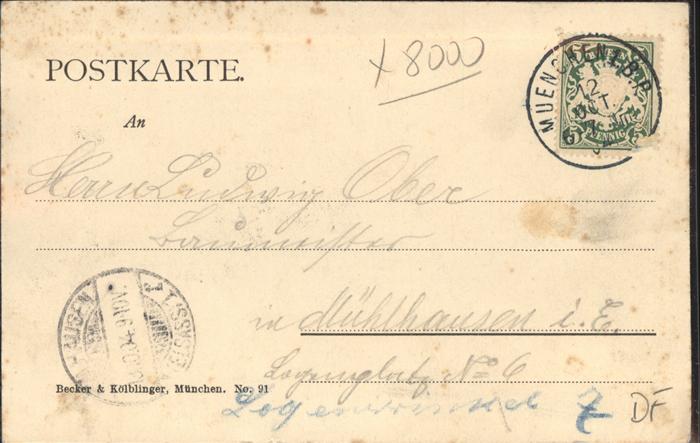 x 8000
POSTKARTE.
MUENCHEN 1. B.P.
12
OCT
5 PFENNIG
An
Herrn Ludwig Ober
Baumeister
in Mühlhausen i. E.
No 6
Becker & Kölblinger, München. No. 91
Logenwinkel 7
DF